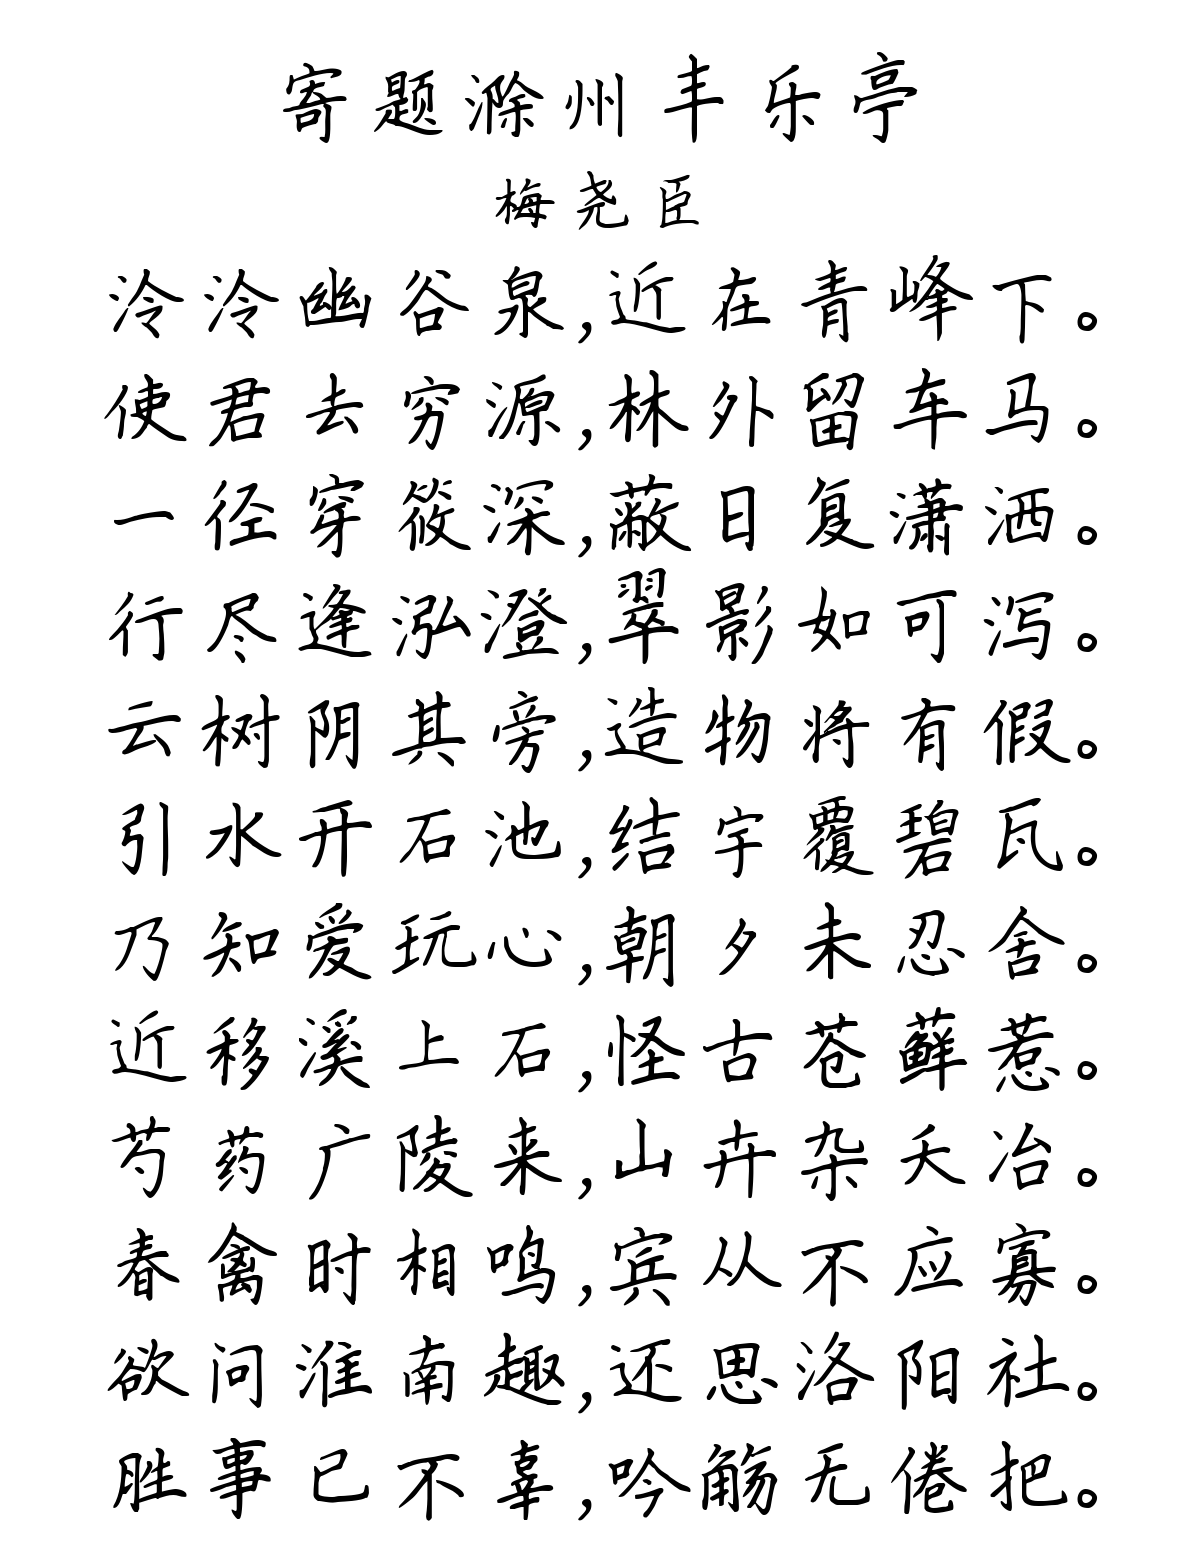 寄题滁州丰乐亭
梅尧臣
泠泠幽谷泉,近在青峰下。
使君去穷源,林外留车马。
一径穿筱深,蔽日复潇洒。
行尽逢泓澄,翠影如可泻。
云树阴其旁,造物将有假。
引水开石池,结宇覆碧瓦。
乃知爱玩心,朝夕未忍舍。
近移溪上石,怪古苍藓惹。
芍药广陵来,山卉杂夭冶。
春禽时相鸣,宾从不应寡。
欲问淮南趣,还思洛阳社。
胜事已不辜,吟觞无倦把。